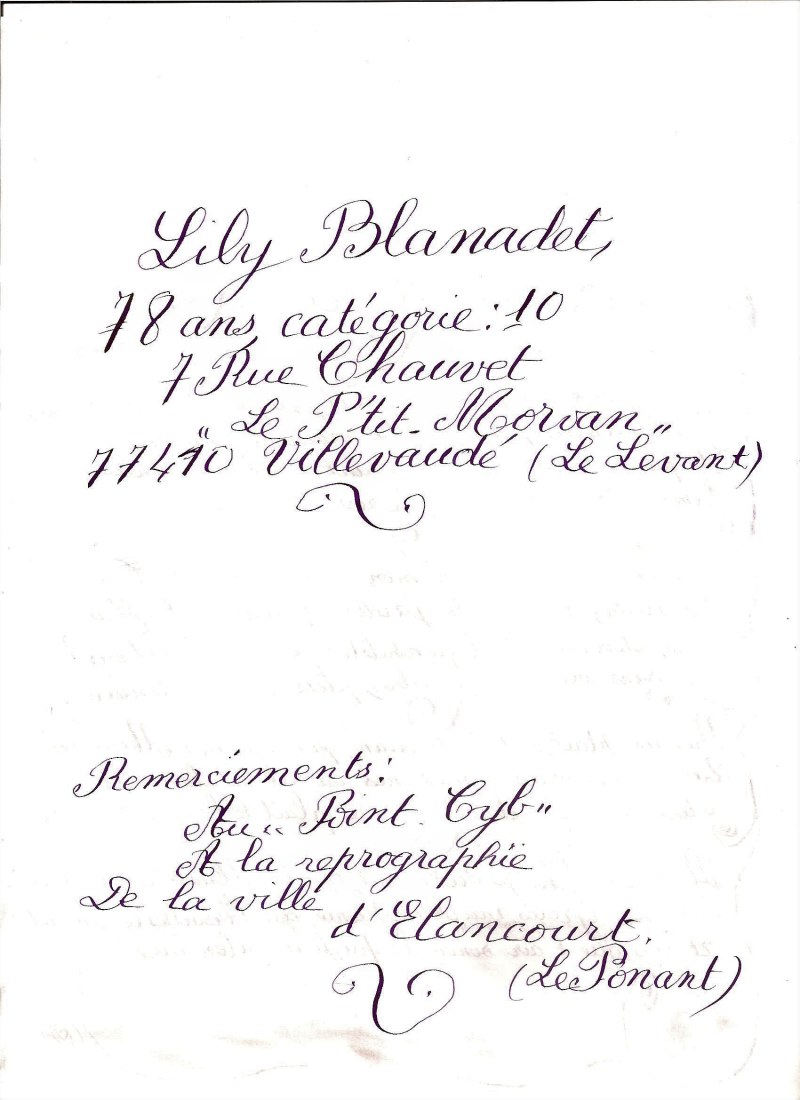 Lily Blanadet,
78 ans, catégorie : 10
7 Rue Chauvet
" Le P'tit - Morvan "
77410 Villevaudé (Le Levant)
Remerciements :
Au " Point - Cyb "
A la reprographie
De la ville
d'Elancourt.
(Le Ponant)